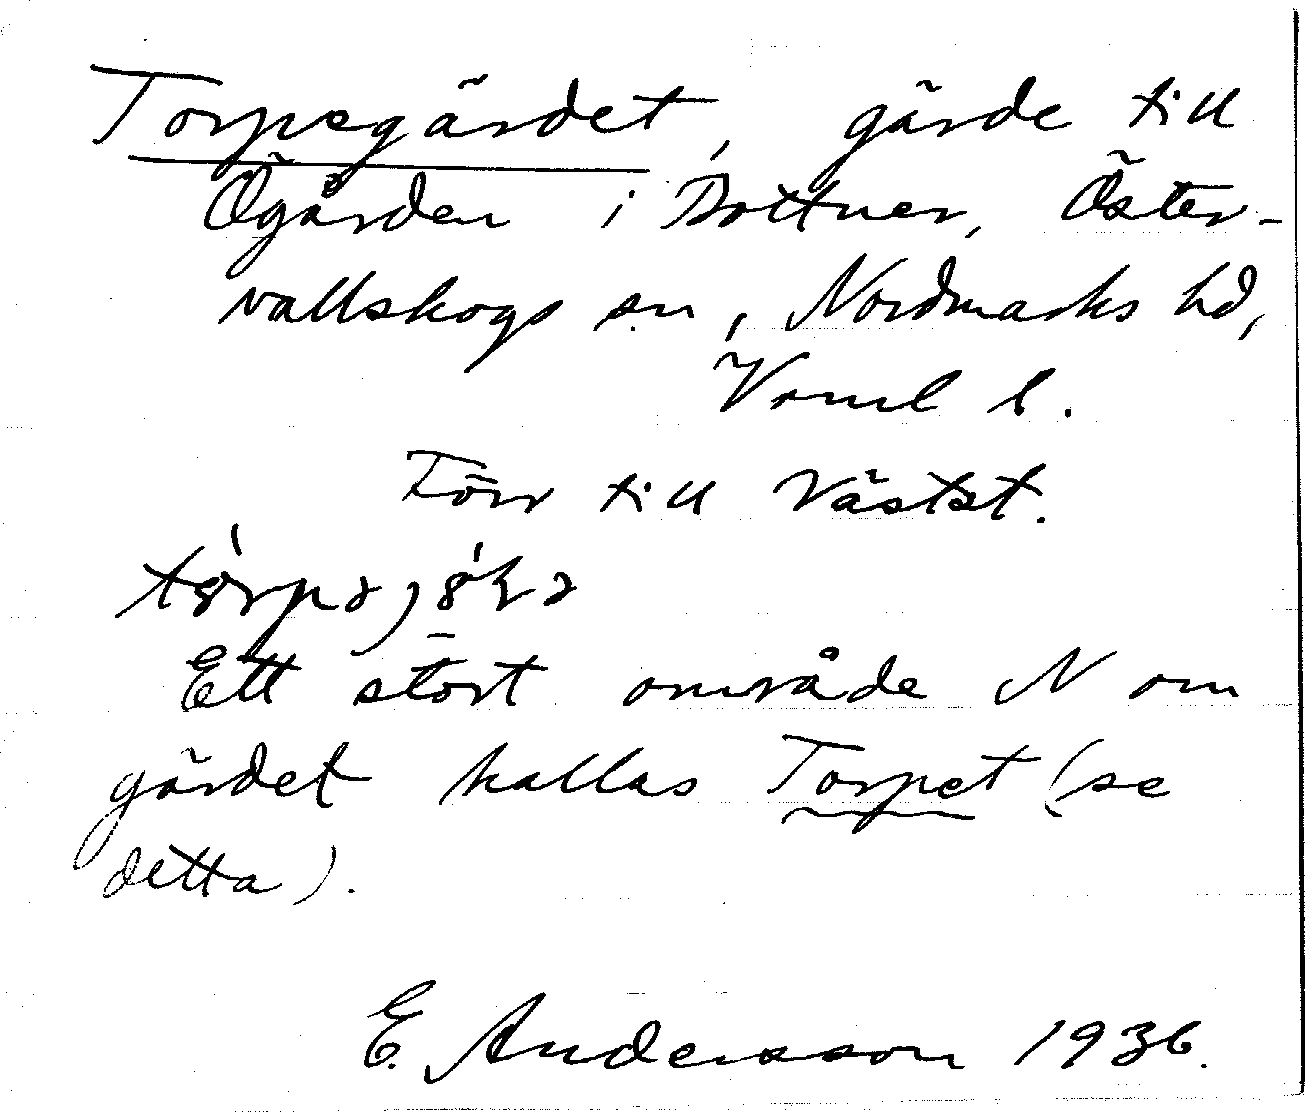 Torpegärdet, gärde till
Ögården i Bottner, Öster-
vallskogs sn, Nordmarks hd,
Värml l.
Förr till Västst.
Ett stort område N om
gärdet kallas Torpet (se
detta).
E. Andersson 1936.